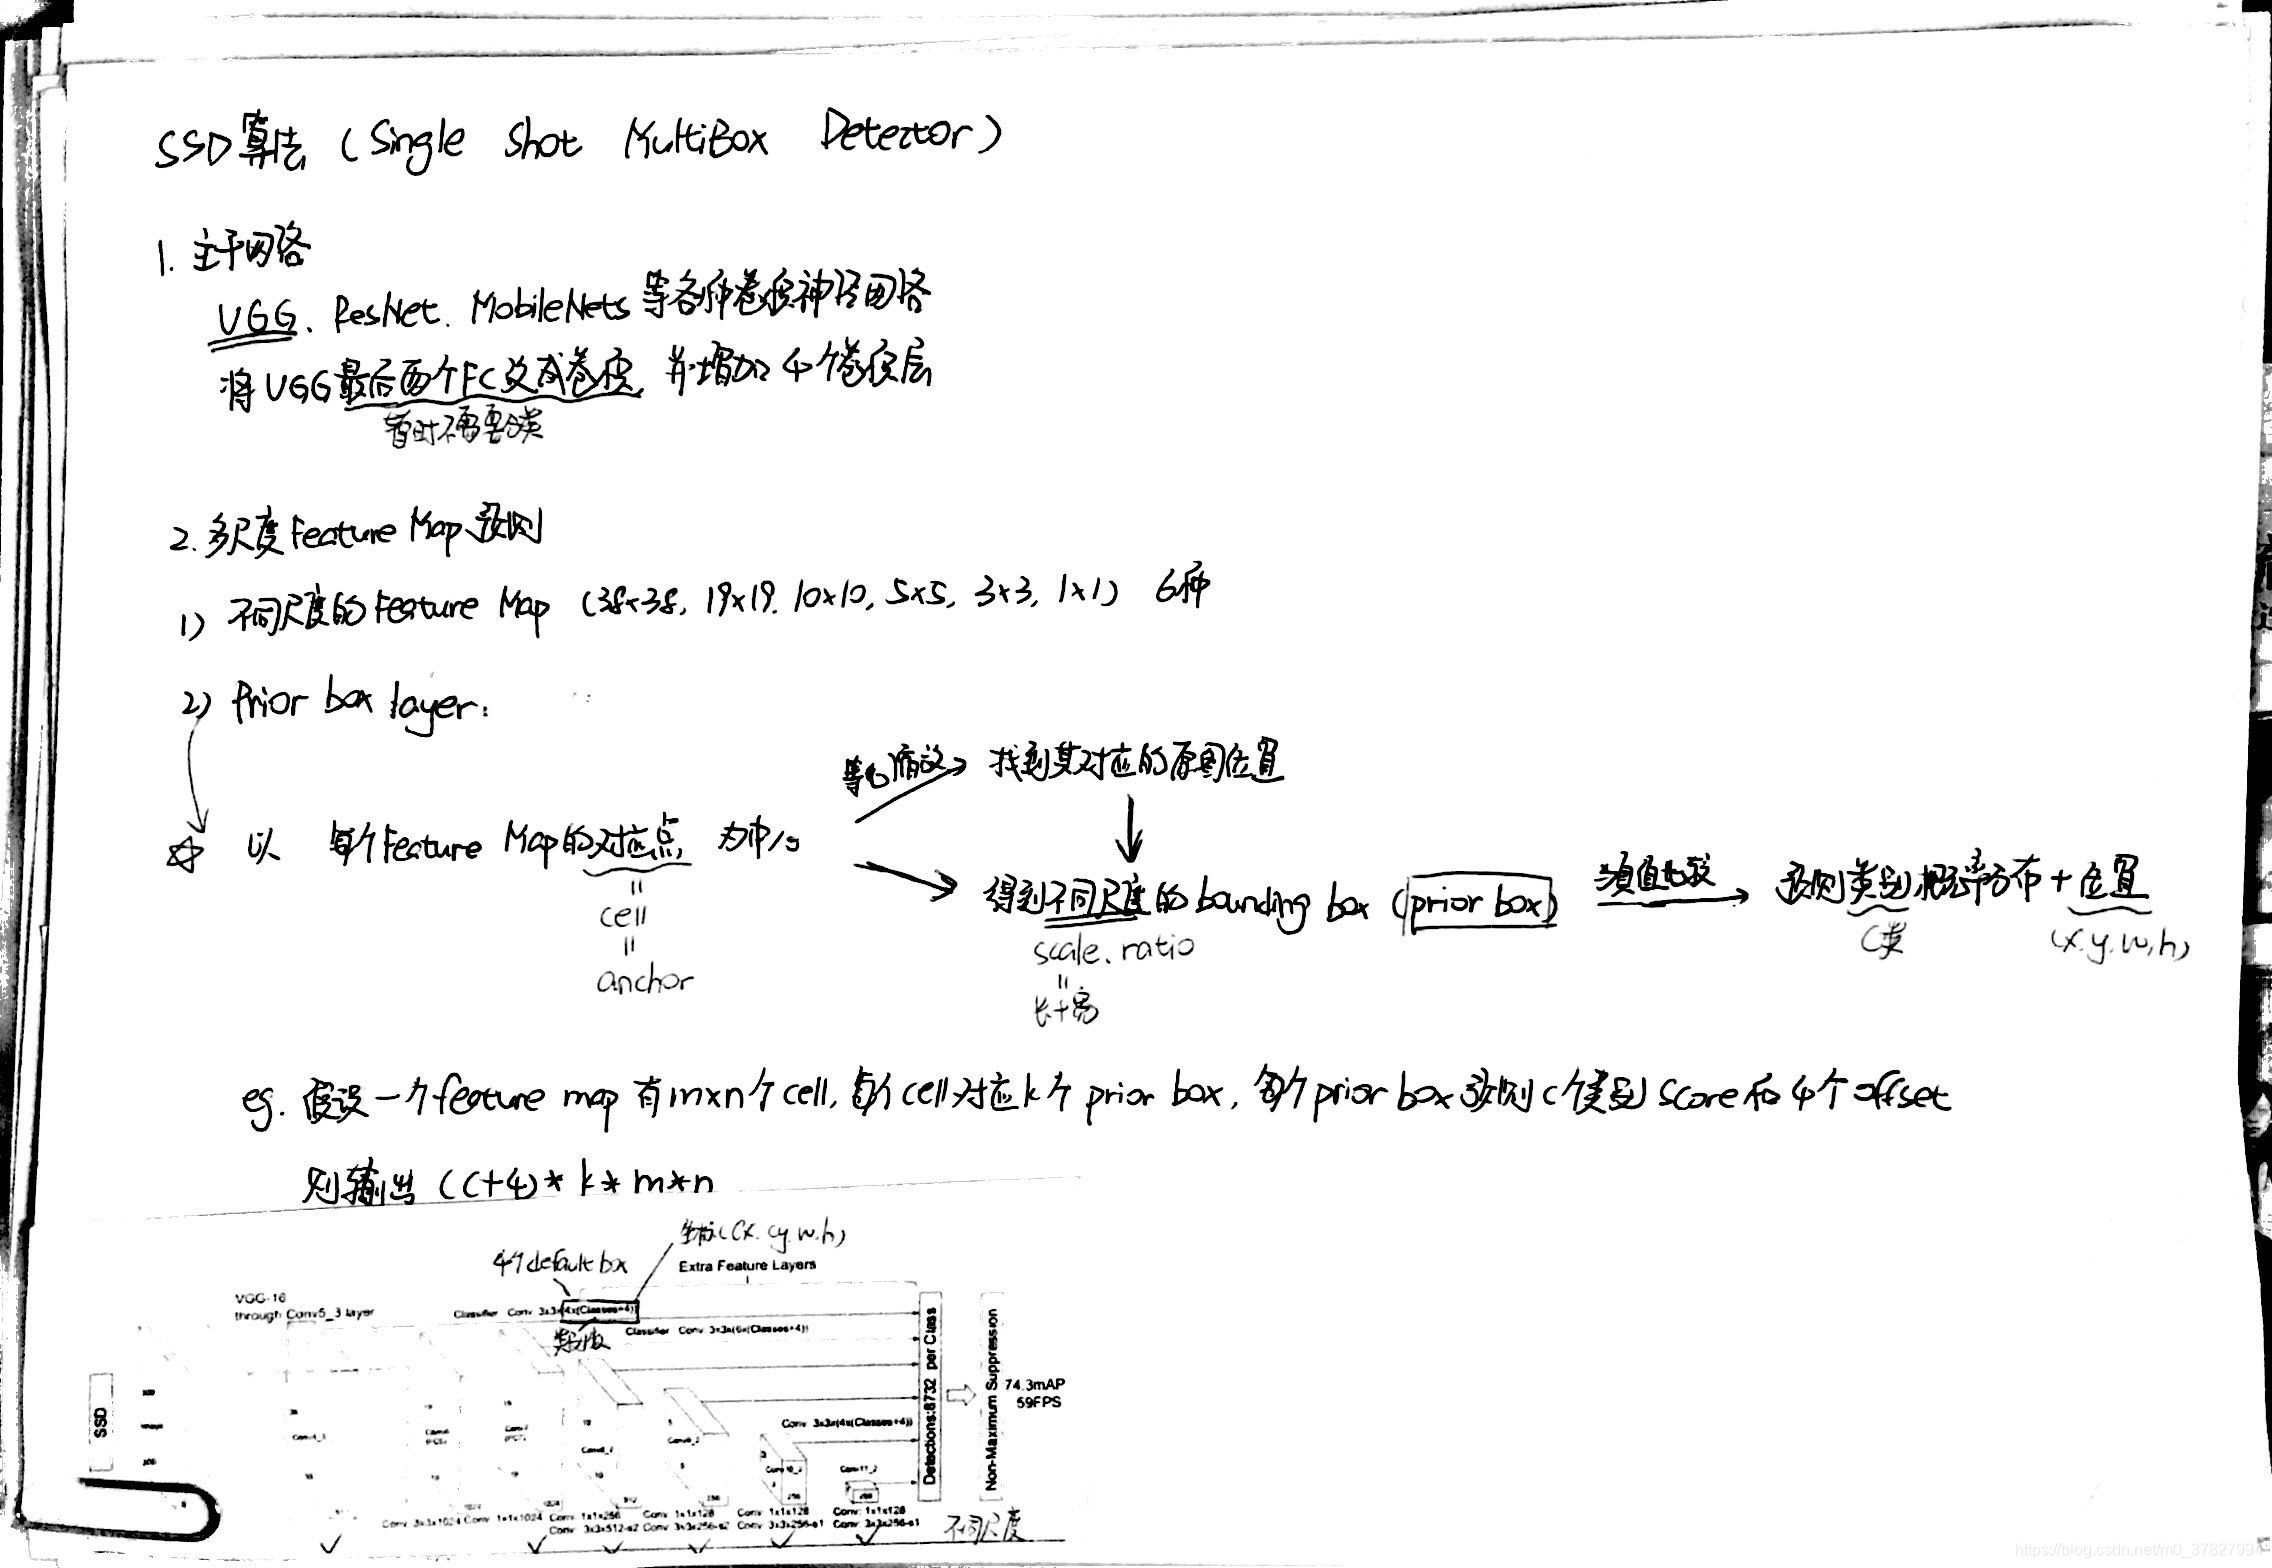 SSD算法 (Single Shot MultiBox Detector)
1. 主干网络
VGG、ResNet、MobileNets等各种卷积神经网络
将VGG最后两个FC改成卷积，并增加4个卷积层
暂时不需要分类
2. 多尺度Feature Map预测
1) 不同尺度的Feature Map (38×38, 19×19, 10×10, 5×5, 3×3, 1×1) 6种
2) Prior box layer:
等比缩放 找到其对应的原图位置
☆ 以 每个Feature Map的对应点 为中心
得到不同尺度的bounding box (prior box) 与真值比较 预测类别概率分布+位置
= cell = anchor
scale. ratio
C类 (x.y.w,h)
= 长+宽
eg. 假设一个feature map 有m×n个cell, 每个cell对应k个 prior box, 每个prior box预测c个类别score和4个offset
则输出 (c+4)* k* m*n
坐标(cx. cy.w.h)
4个default box
Extra Feature Layers
VGG-16
through Conv5_3 layer
Classifier : Conv: 3x3x(4x(Classes+4))
Classifier : Conv: 3x3x(6x(Classes+4))
SSD
Conv: 3x3x(4x(Classes+4))
Detections:8732 per Class
Non-Maximum Suppression
74.3mAP
59FPS
Conv: 3x3x1024 Conv: 1x1x1024 Conv: 1x1x256 Conv: 1x1x128 Conv: 1x1x128 Conv: 1x1x128
Conv: 3x3x512-s2 Conv: 3x3x256-s2 Conv: 3x3x256-s1 Conv: 3x3x256-s1
不同尺度
https://blog.csdn.net/m0_37827994